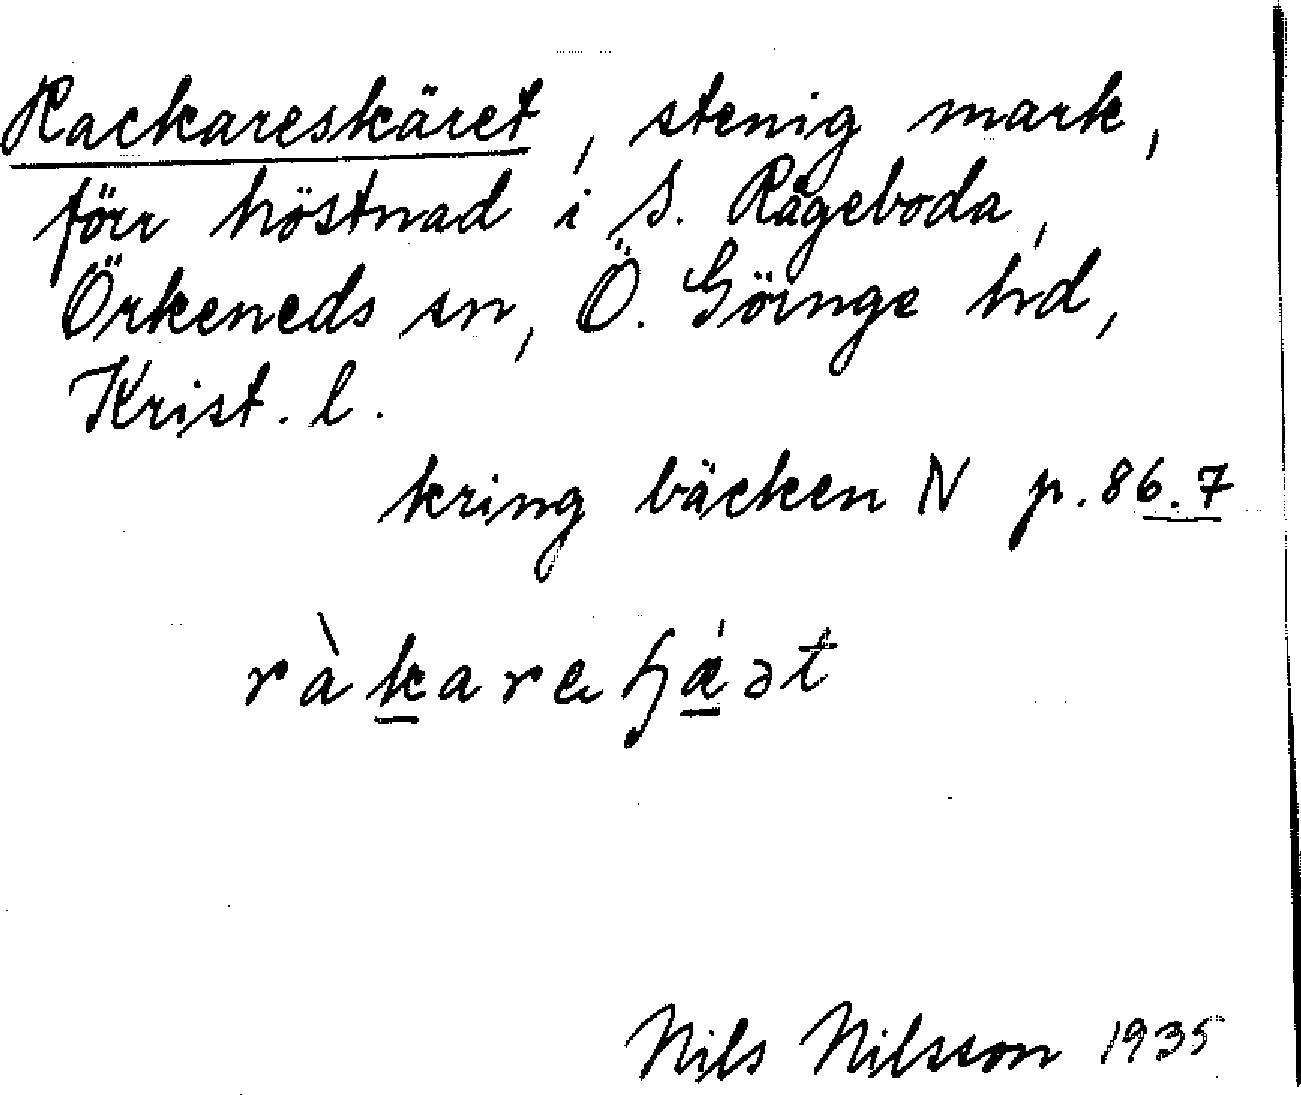 Rackareskäret, stenig mark,
förr höstnad i S. Rågeboda,
Örkeneds sn, Ö. Göinge hd,
Krist. l.
kring bäcken N p. 86.7
ràkare ɧǽət
Nils Nilsson 1935